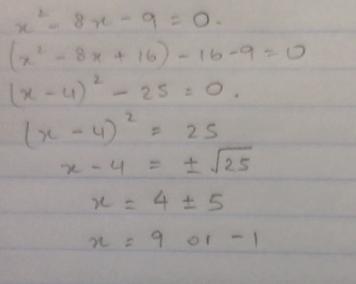 x² - 8x - 9 = 0.
(x² - 8x + 16) - 16 - 9 = 0
(x - 4)² - 25 = 0.
(x - 4)² = 25
x - 4 = ± √25
x = 4 ± 5
x = 9 or -1